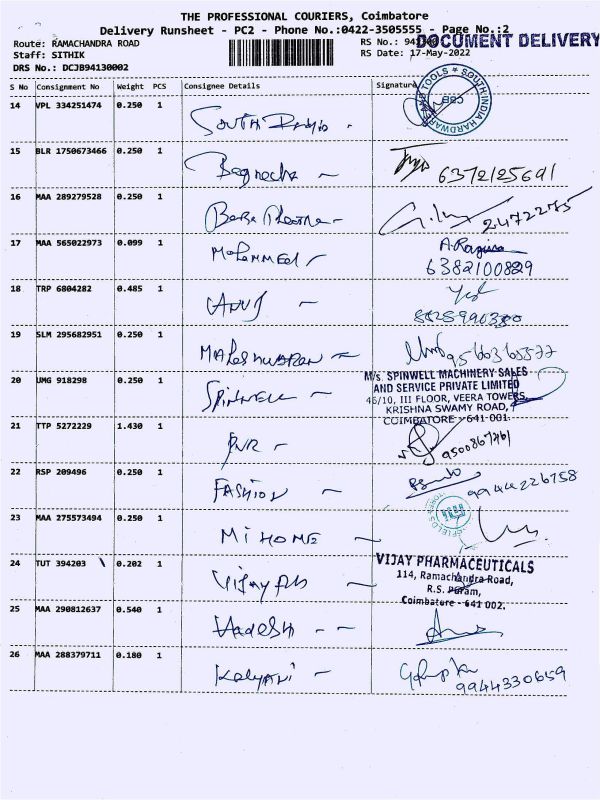 THE PROFESSIONAL COURIERS, Coimbatore
Delivery Runsheet - PC2 - Phone No.:0422-3505555 - Page No.:2
Route: RAMACHANDRA ROAD RS No.: DOCUMENT DELIVERY
Staff: SITHIK RS Date: 17-May-2022
DRS No.: DCJB94130002
S No Consignment No Weight PCS Consignee Details Signature
SOUTH INDIA HARDWARE AND TOOLS CBE
14 VPL 334251474 0.250 1 South
15 BLR 1750673466 0.250 1 6372125691
16 MAA 289279528 0.250 1 2472275
17 MAA 565022973 0.099 1 Mohammed A.Razina
6382100829
18 TRP 6804282 0.485 1 ANUJ
19 SLM 295682951 0.250 1 MAHESHWAREN
20 UMG 918298 0.250 1 SPINWELL
M/s. SPINWELL MACHINERY SALES
AND SERVICE PRIVATE LIMITED
46/10, III FLOOR, VEERA TOWERS,
KRISHNA SWAMY ROAD,
COIMBATORE - 641 001.
21 TTP 5272229 1.430 1 PVR 9500867261
22 RSP 209496 0.250 1 FASHION 9944226758
23 MAA 275573494 0.250 1 Mi HOME
24 TUT 394203 0.202 1 Vijay Ph
VIJAY PHARMACEUTICALS
114, Ramachandra Road,
R.S. Puram,
Coimbatore - 641 002.
25 MAA 290812637 0.540 1
26 MAA 288379711 0.180 1 Kalyani
9944330659